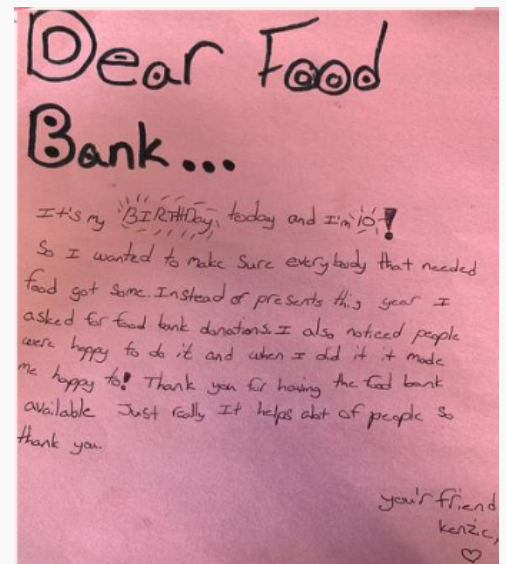 Dear Food
Bank...
It's my BIRTHDay today and I'm 10!
So I wanted to make sure everybody that needed
food got some. Instead of presents this year I
asked for food bank donations. I also noticed people
were happy to do it and when I did it it made
me happy to! Thank you for having the food bank
available Just really It helps alot of people so
thank you.
you'r friend
kenzie,